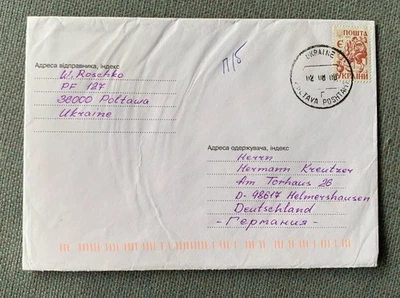 Адреса відправника, індекс
W. Roschko
PF 127
36000 Poltawa
Ukraine
П/б
ПОШТА
Є
УКРАЇНИ
UKRAINE
POLTAVA POSHTAMT
Г
Адреса одержувача, індекс
Herrn
Hermann Kreutzer
Am Torhaus 26
D-98617 Helmershausen
Deutschland
- Германия -